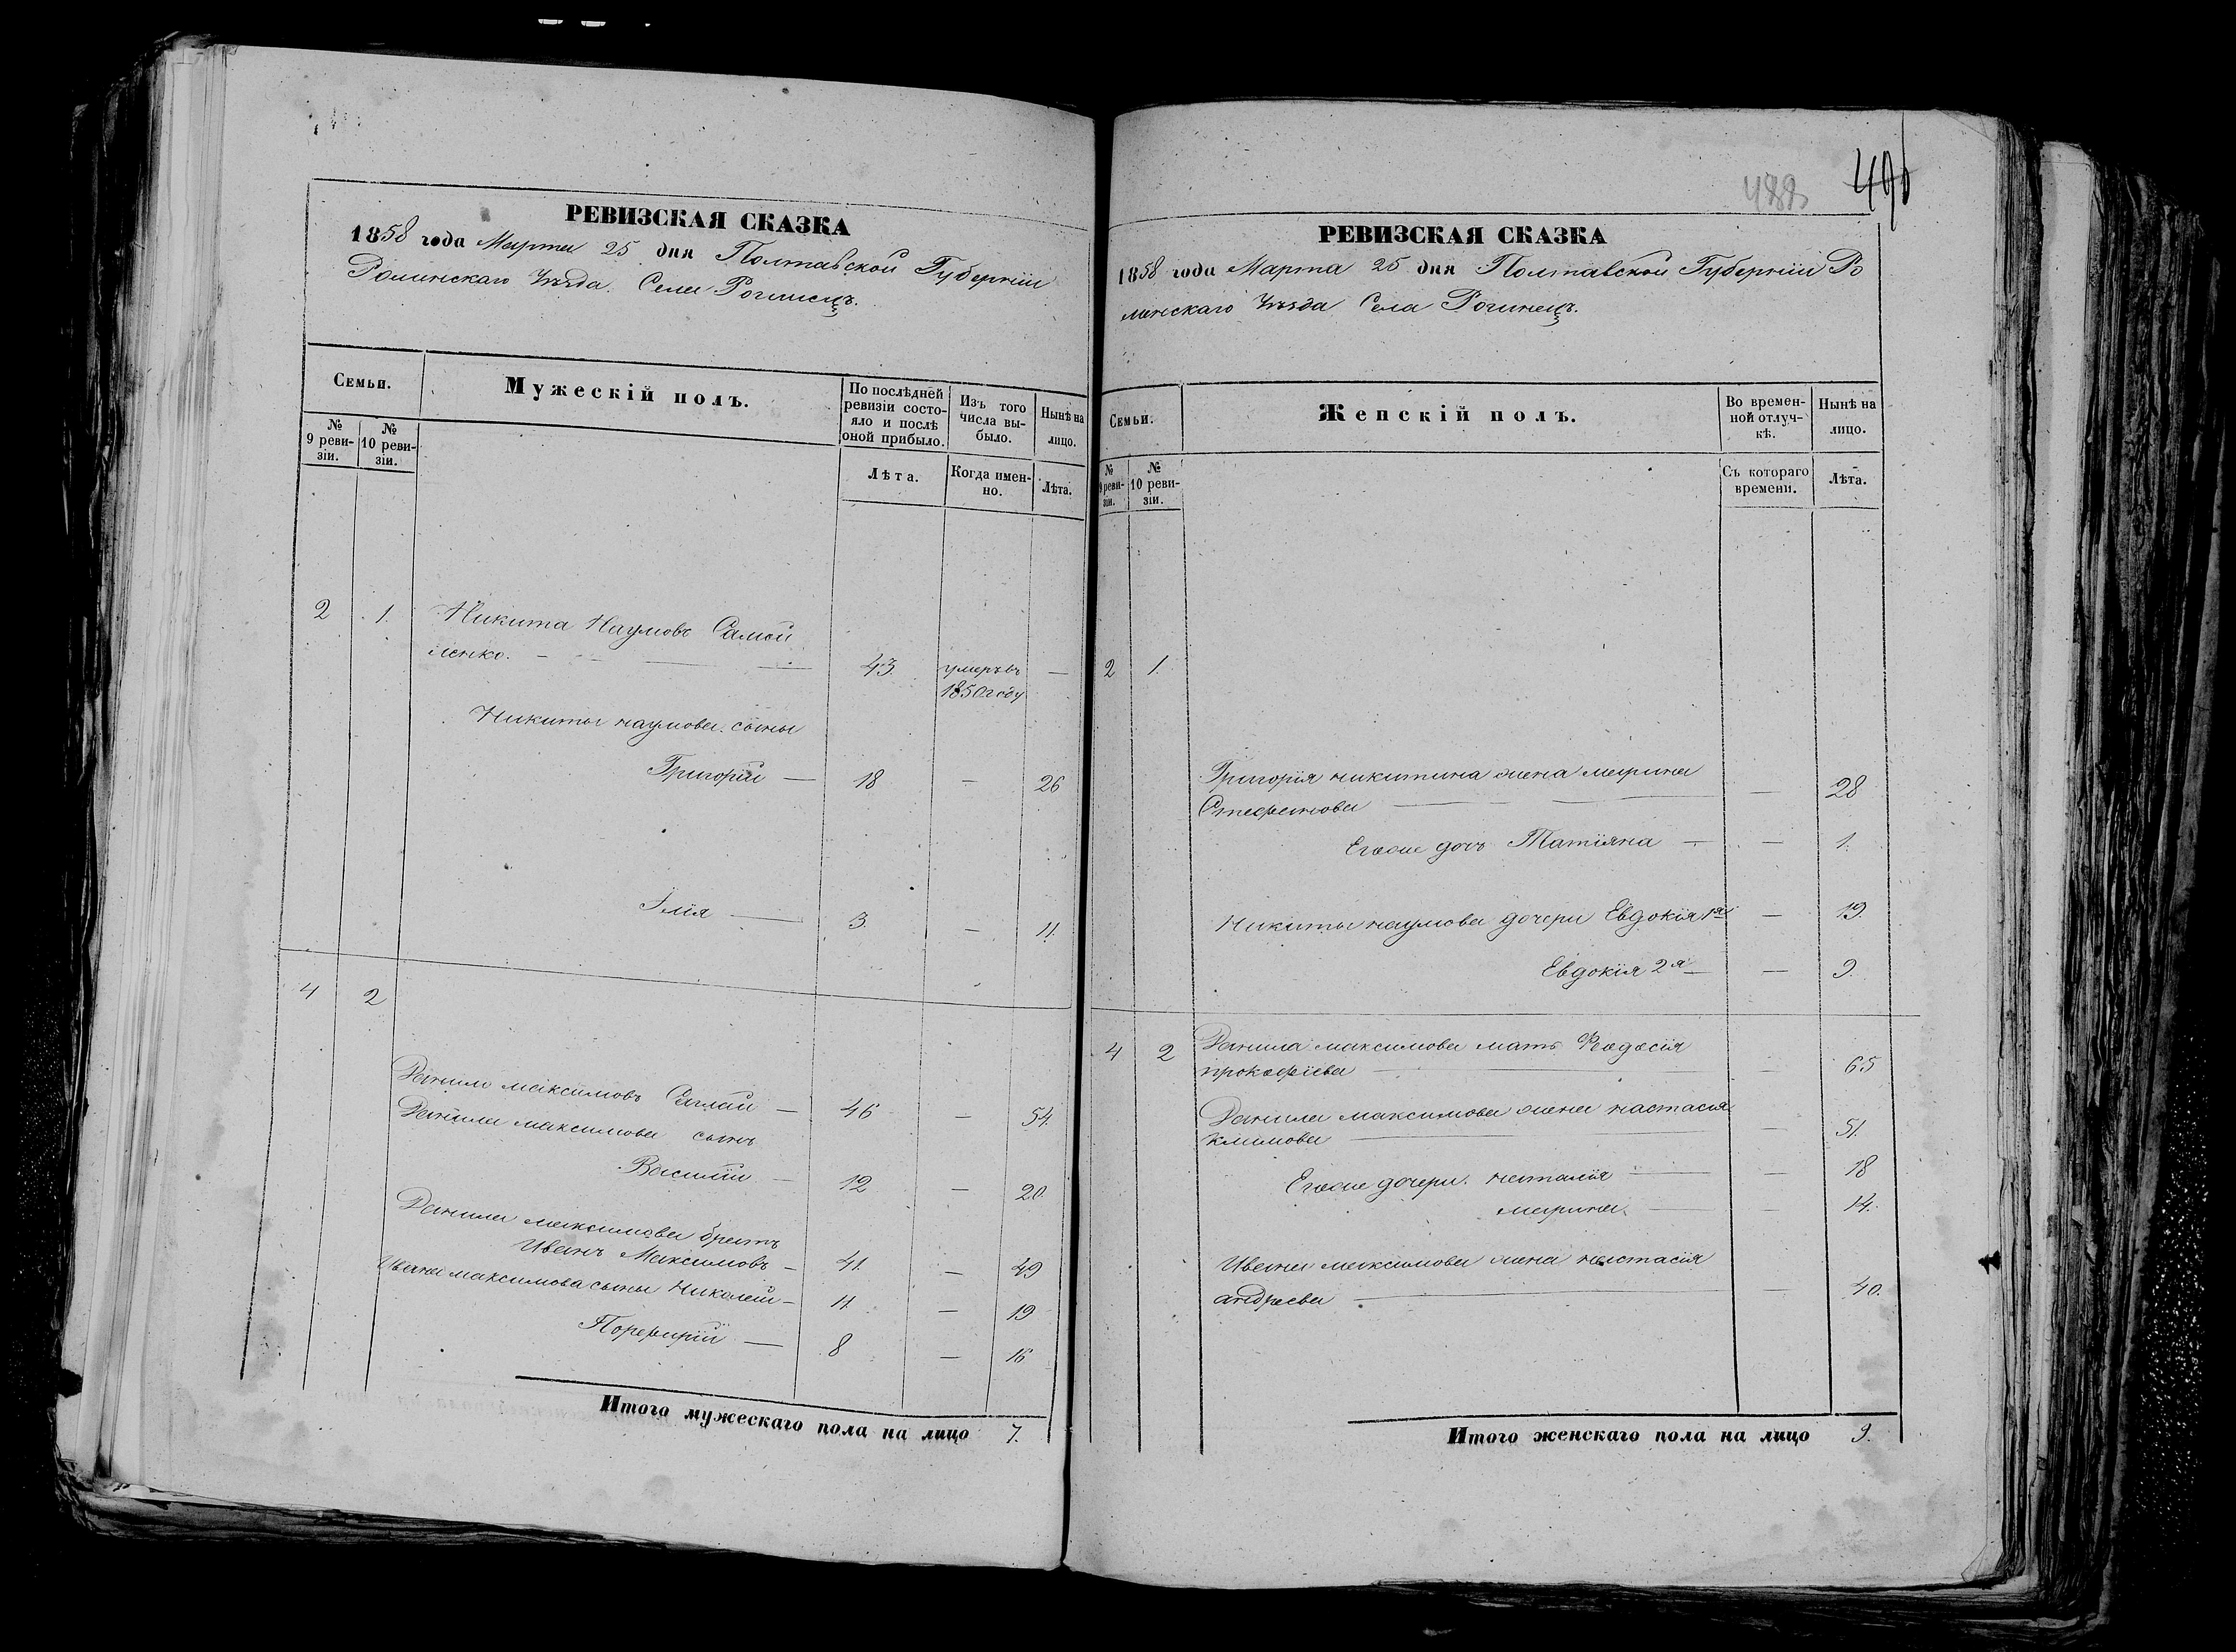 РЕВИЗСКАЯ СКАЗКА
1858 года Марта 25 дня Полтавской Губерніи
Роменскаго Уѣзда. Села Рогинецъ.
Семьи.
Мужескій полъ.
По послѣдней
ревизіи состо-
яло и послѣ
оной прибыло.
Изъ того
числа вы-
было.
Нынѣ на
лицо.
№
9 реви-
зіи.
№
10 реви-
зіи.
Лѣта.
Когда имен-
но.
Лѣта.
2 1. Никита Наумовъ Самой
ленко. — 43. умеръ въ —
1850 году
Никиты наумова сыны
Григорій — 18 — 26
Илія — 3. — 11.
4 2
Данило максимовъ — 46 — 54.
Данила максимова сынъ
Василій — 12 — 20.
Данила максимова братъ
Иванъ Максимовъ — 41. — 49
Ивана максимова сыны Николай — 11. — 19
Порфирій — 8 — 16
Итого мужескаго пола на лицо 7.
490
РЕВИЗСКАЯ СКАЗКА
1858 года Марта 25 дня Полтавской Губерніи Ро
менскаго Уѣзда Села Рогинецъ.
Семьи.
Женскій полъ.
Во времен-
ной отлуч-
кѣ.
Нынѣ на
лицо.
№
9 реви-
зіи.
№
10 реви-
зіи.
Съ котораго
времени.
Лѣта.
2 1.
Григорія никитина жена марина
Стефанова — — 28
Егоже дочь Татіяна — — 1.
Никиты наумова дочери Евдокія 1я — 19.
Евдокія 2я — — 9.
4 2 Данила максимова мать Феодосія
прокофіева — 65
Данила максимова жена настасія
климова — — 51.
Егоже дочери. наталія — — 18
марина. — — 14.
Ивана максимова жена настасія
андреева — — 40.
Итого женскаго пола на лицо 9.